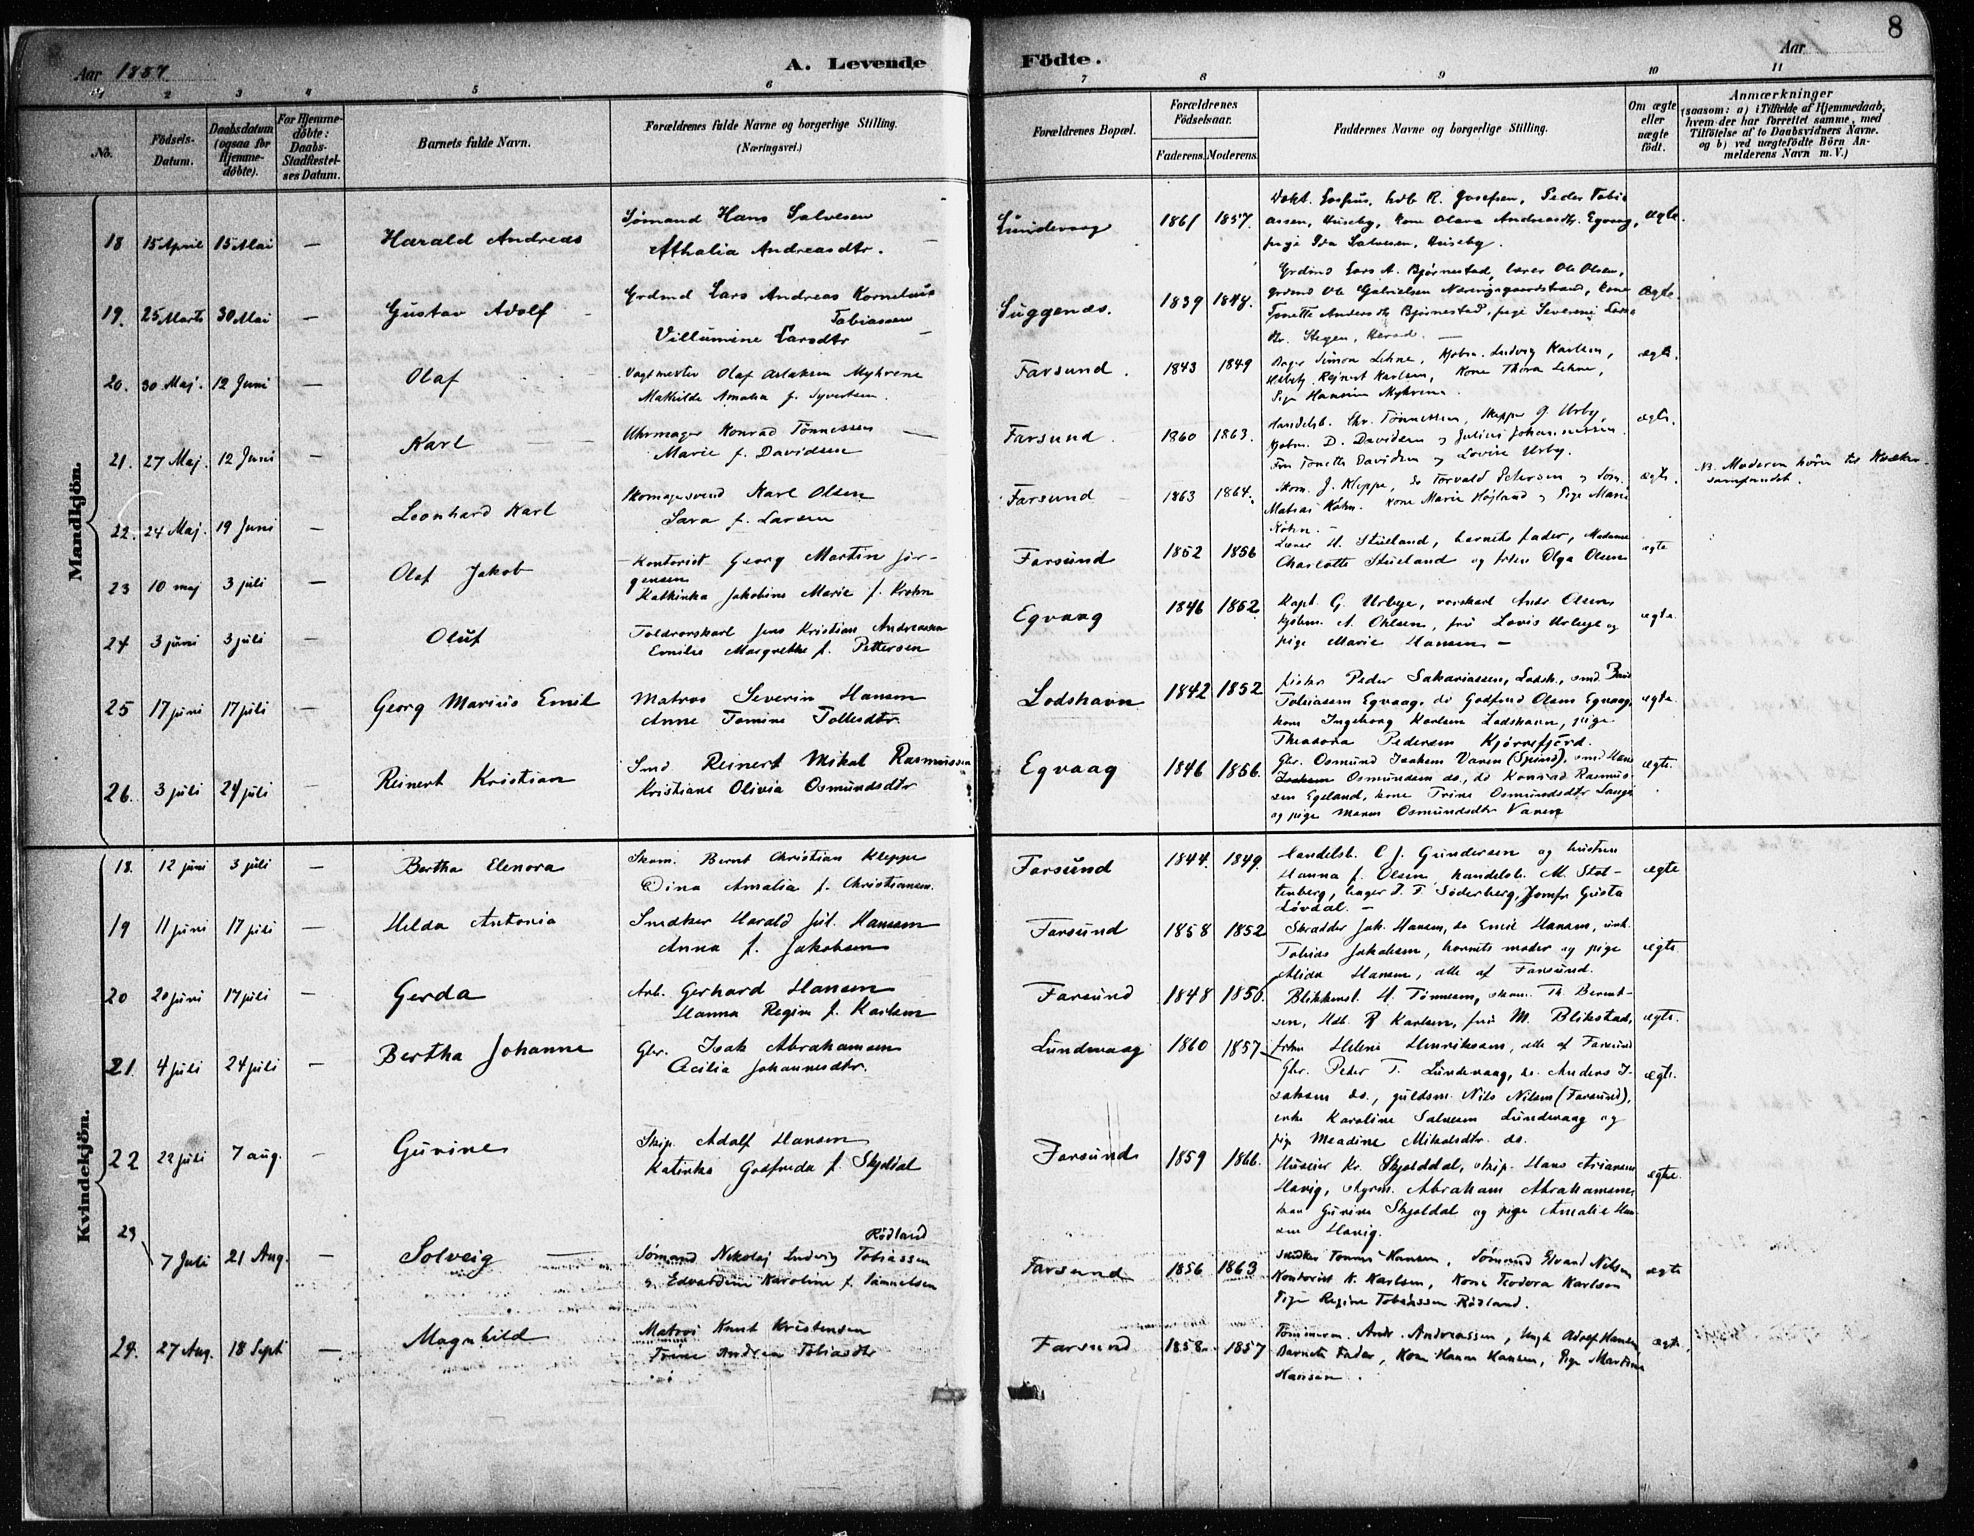 8
Aar 1887
A. Levende
Födte.
Aar
1 2 3 4 5 6 7 8 9 10 11
No.
Födsels-Datum.
Daabsdatum (ogsaa for Hjemme-döbte).
For Hjemme-döbte: Daabs-Stadfæstel-ses Datum.
Barnets fulde Navn.
Forældrenes fulde Navne og borgerlige Stilling.
(Næringsvei.)
Forældrenes Bopæl.
Forældrenes Födselsaar.
Faderens. Moderens.
Faddernes Navne og borgerlige Stilling.
Om ægte eller uægte födt.
Anmærkninger
(saasom: a) i Tilfælde af Hjemmedaab,
hvem der har forrettet samme, med
Tilföielse af to Daabsvidners Navne.
og b) ved uægtefödte Börn An-
melderens Navn m. V.)
Mandkjön.
18 15 April 15 Mai — Harald Andreas
Sømand Hans Salvesen
Athalia Andreasdtr.
Lundevaag 1861 1857.
Peder Tobi-
assen, Huseby, kone Olava Andreasdtr. Egvaag,
pige Ida Salvesen, Huseby.
ægte.
19. 25 Marts 30 Mai — Gustav Adolf
Grdmd Lars Andreas Kornelius
Tobiassen
Villumine Larsdtr
Suggenæs. 1839 1848.
Grdmd Lars A. Bjørnestad, lærer Ole Olsen,
Grdmd Ole Gabrielsen kone
Tonette Andersdtr Bjørnestad, pige Severine Lars-
dtr. Stegen, Herad. —
ægte.
20. 30 Maj. 12 Juni — Olaf
Vagtmester Olaf Aslaksen Myhrene
Mathilde Amalia f. Syvertsen.
Farsund. 1843 1849
Simon Lehne, Kjøbm. Ludvig Karlsen,
Rejnert Karlsen, Kone Thora Lehne,
Pige Hansine Myhrene.
ægte.
21. 27 Maj. 12 Juni — Karl
Uhrmager Konrad Tönnessen
Marie f. Davidsen
Farsund. 1860 1863.
Handelsb. Chr. Tønnessen, Skipper G. Urby,
Kjøbm. D. Davidsen og Julius Johannessen.
Fru Tonette Davidsen og Lovise Urby.
ægte.
22. 24 Maj. 19 Juni — Leonhard Karl
Skomagersvend Karl Olsen
Sara f. Larsen
Farsund 1863 1864.
Skom. J. Kleppe, do Torvald Petersen og Søm.
Matias Køhn. Kone Marie Højland og Pige Marie
Køhn. —
ægte.
NB. Moderen hører til Kvæker-
samfundet.
23 10 maj 3 juli — Olaf Jakob
Kontorist Georg Martin Jør-
gensen
Kathinka Jakobine Marie f. Krohn
Farsund 1852 1856
Lærer H. Stueland, barnets fader, Madame
Charlotte Stueland og frken Olga Olsen
ægte
24 3 juni 3 juli — Oluf
Toldrorskarl Jens Kristian Andreassen
Emilie Margrethe f. Pettersen
Egvaag 1846 1852
Kapt. G. Urbye, rorskarl Andr. Olsen
kjøbm. A. Ohlsen, fru Lovis Urbye og
pige Marie Hansen —
ægte.
25 17 juni 17 juli — Georg Marius Emil
Matros Severin Hansen
Anne Tomine Tollesdtr.
Lodshavn 1842 1852
Peder Sakariassen, Lodsh.,
Tobiassen Egvaag, do Godfred Olsen Egvaag,
kone Ingeborg Karlsen Lodshavn, pige
Theodora Pedersen Kjørrefjord.
ægte.
26. 3 juli 24 juli — Reinert Kristian
Smd. Reinert Mikal Rasmussen
Kristiane Olivia Osmundsdtr
Egvaag 1846 1856.
Gbr. Osmund Isaksen Vanen (Spind), smd Hans
Osmundsen do., do Konrad Rasmus-
sen Egeland, kone Trine Osmundsdtr
og pige Maren Osmundsdtr Vanen
ægte.
Kvindekjön.
18. 12 juni 3 juli — Bertha Elenora
Skom. Bernt Christian Kleppe
Dina Amalia f. Christiansen.
Farsund 1844. 1849.
Handelsb. C. J. Gundersen og hustru
Hanna f. Olsen, handelsb. M. Stol-
tenberg, bager J. F. Söderberg, Jomfr. Gusta
Løvdal. —
ægte
19 11 juni 17 juli — Helda Antonia
Snedker Harald Jul. Hansen
Anna f. Jakobsen
Farsund 1858 1852
Skrædder Jak. Hansen, do Emil Hansen,
Tobias Jakobsen, barnets moder og pige
Alida Hansen, alle af Farsund.
ægte
20 20 juni 17 juli — Gerda
Arb. Gerhard Hansen
Hanna Regine f. Karlsen
Farsund 1848 1856.
Blikkensl. H. Tønnesen, skom. Th. Bernt-
sen, Hdb. R Karlsen, fru M. Blikstad,
frken Helene Henriksen, alle af Farsund
ægte.
21 4 juli 24 juli — Bertha Johanne
Gbr. Isak Abrahamsen
Cecilia Johannesdtr.
Lundevaag 1860 1857
Gbr. Peder T. Lundevaag, do. Anders I-
saksen do., guldsm. Nils Nilsen (Farsund),
enke Karoline Salvesen Lundevaag og
pige Meadine Mikalsdtr. do.
ægte.
22 22 juli 7 aug. — Guvine
Skip. Adolf Hansen
Katinka Godfreda f. Skjoldal
Farsund 1859 1866.
Kr. Skjolddal, skip. Hans Arianson
Havig, styrm. Abraham Abrahamsen,
Guvine Skjoldal og pige Amalie Han-
sen Havig.
ægte.
23 7 Juli 21 Aug. — Solveig
Rødland
Sømand Nikolaj Ludvig Tobiassen
og Edvardine Karoline f. Samuelsen
Farsund 1856 1863
Snedker Tønnes Hansen, Sømand Edvard Nilsen
Kontorist K. Karlsen, Kone Teodora Karlson
Pige Regine Tobiassen Rödland.
ægte
29. 27 Aug. 18 Sept — Magnhild
Matros Knut Kristensen
Trine Andrea Tobiasdtr
Farsund 1858. 1857
Tømmerm. Andr. Andreassen, Ungk Adolf Hansen
Barnets Fader, Kone Hanna Hansen, Pige Martine
Hansen.
ægte.